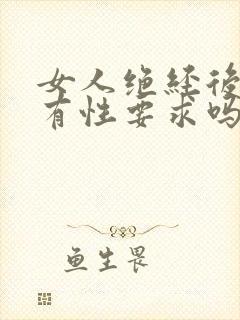 女人绝经後
有性要求吗
鱼生畏